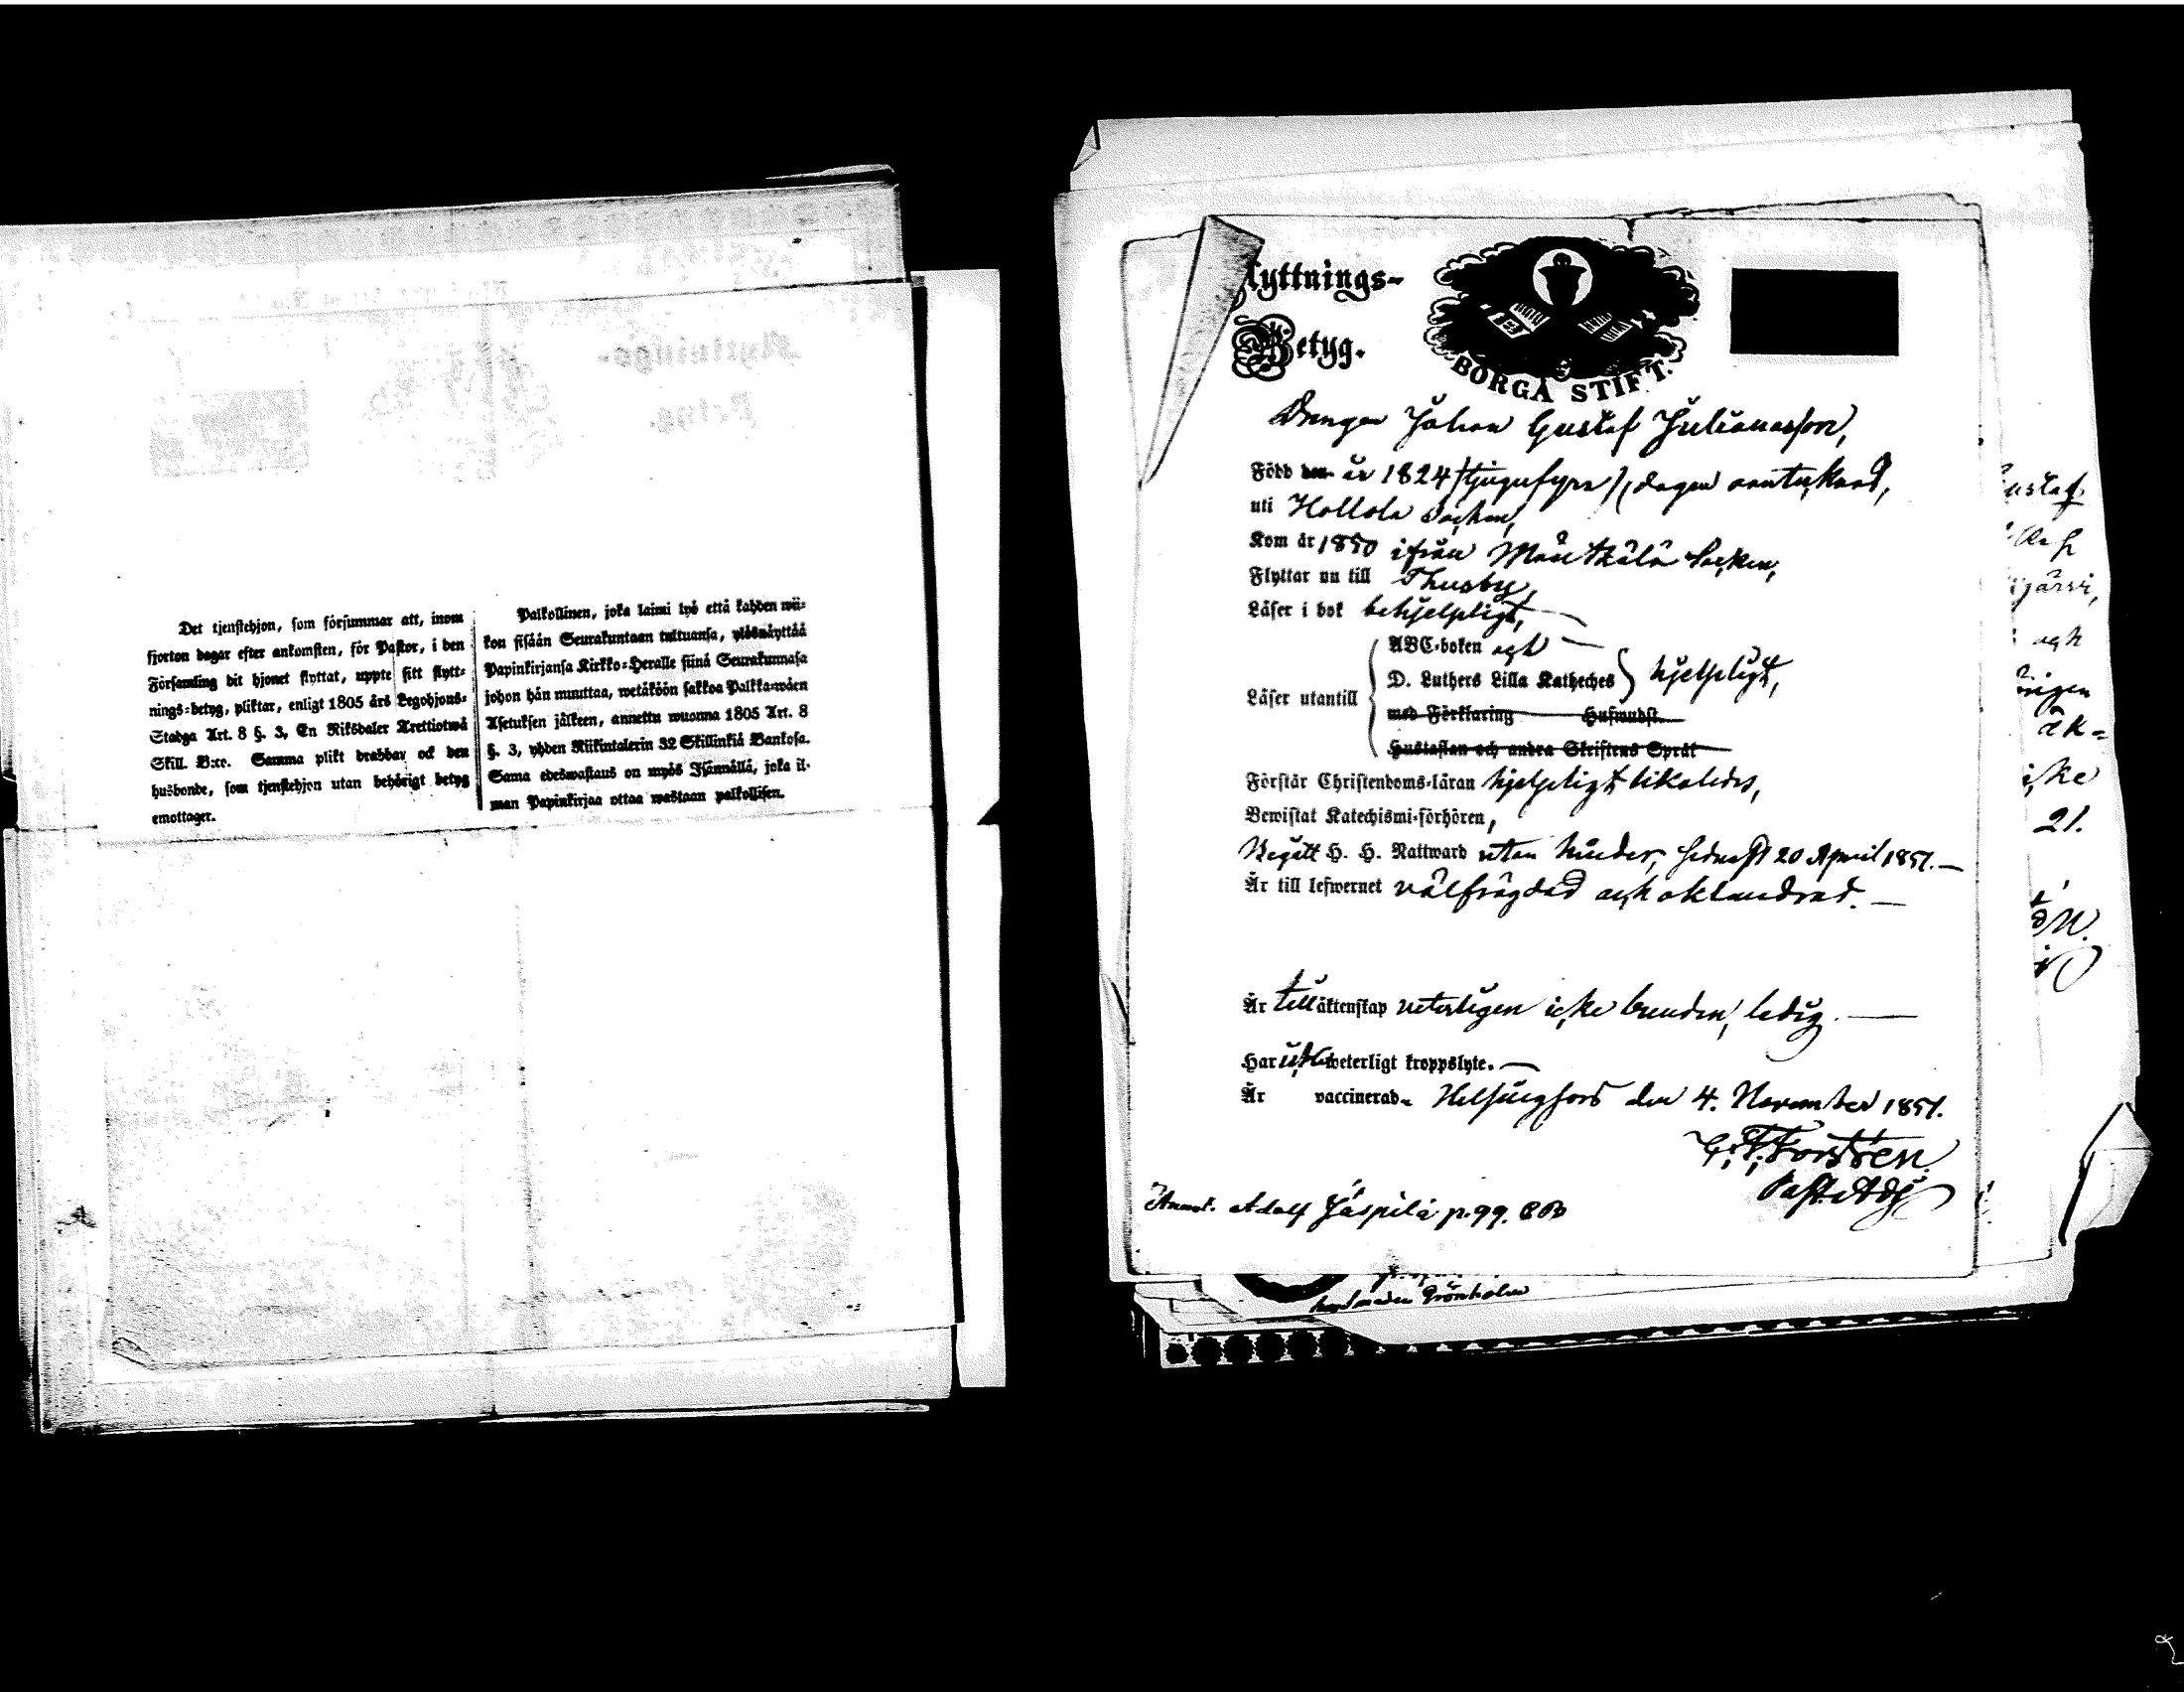 Det tjenstehjon, som försummar att, inom
fjorton dagar efter ankomsten, för Pastor, i den
Församling dit hjonet flyttat, uppte sitt flytt-
nings-betyg, pliktar, enligt 1805 års Legohjons-
Stadga Art. 8 §. 3, En Riksdaler Trettiotwå
Skill. B:co. Samma plikt drabbar ock den
husbonde, som tjenstehjon utan behörigt betyg
emottager.
Palkollinen, joka laimi lyö että kahden wii-
kon sisään Seurakuntaan tultuansa, ylösnäyttää
Papinkirjansa Kirkko-Heralle siinä Seurakunnasa
johon hän muuttaa, wetäköön sakkoa Palkka-wäen
Asetuksen jälkeen, annettu wuonna 1805 Art. 8
§. 3, yhden Riikintalerin 32 Skillinkiä Bankosa.
Sama edeswastaus on myös Isännällä, joka il-
man Papinkirjaa ottaa wastaan palkollisen.
Flyttnings-
Betyg.
BORGÅ STIFT.
Drengen Johan Gustaf Julianasson,
Född den år 1824 /tjugufyra/, dagen oantecknad,
uti Hollola Socken,
Kom år 1850 ifrån Mäntsälä Socken,
Flyttar nu till Thusby,
Läser i bok behjelpligt,
Läser utantill
ABC-boken och
D. Luthers Lilla Katheches hjelpligt,
med Förklaring Husmudst.
Hustaflan och andra Skriftens Språk
Förstår Christendoms-läran hjelpligt likaledes,
Bewistat Katechismi-förhören,
Begått H. H. Nattward utan hinder, sednast 20 April 1851.
Är till lefwernet välfrägdad och oklandrad.
Är till äktenskap veterligen icke bunden, ledig.
Har icke weterligt kroppslyte.
Är vaccinerad. Helsingfors den 4. November 1851.
Forstén
Past. Adj
Annot. Adolf Jäspilä p. 99.
Grönholm
ustaf
järvi,
och
äk-
icke
21.